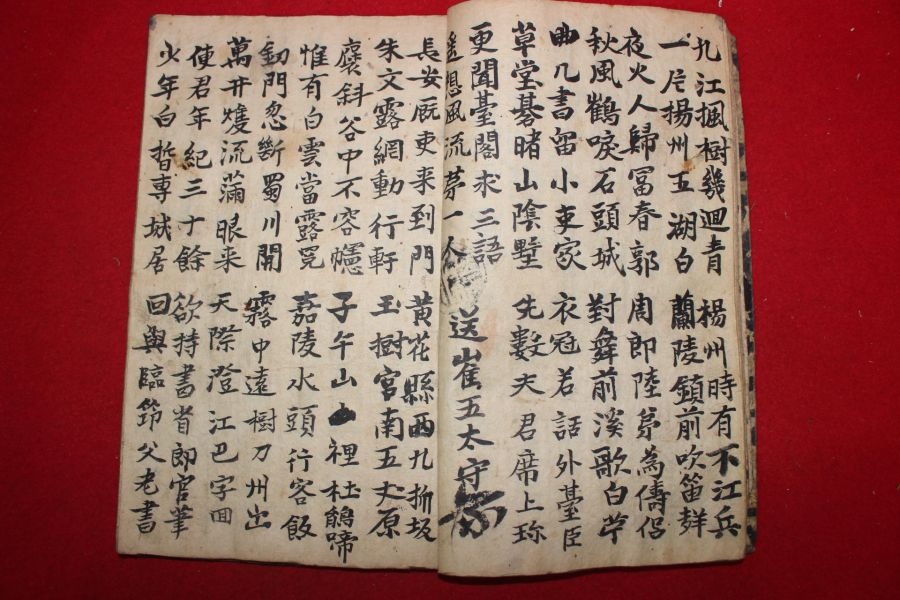 九江楓樹幾迴青 楊州時有下江兵
一片揚州五湖白 蘭陵鎖前吹笛聲
夜火人歸冨春郭 周郎陸苐為儔侶
秋風鶴唳石頭城 對舞前溪歌白苧
曲几書留小吏家 衣冠若話外臺臣
草堂碁賭山陰墅 先數夫君席上珍
更聞臺閣求三語
遙想風流苐一人 送崔五太守
長安厩吏来到門 黃花縣西九折坂
朱文露網動行軒 玉樹宮南五丈原
褒斜谷中不容幰 子午山裡杜鵑啼
惟有白雲當露冕 嘉陵水頭行客飯
釰門忽斷蜀川開 霧中遠樹刀州出
萬井雙流滿眼来 天際澄江巴字回
使君年紀三十餘 欲持書省郎官筆
少年白晳專城居 回與臨節父老書